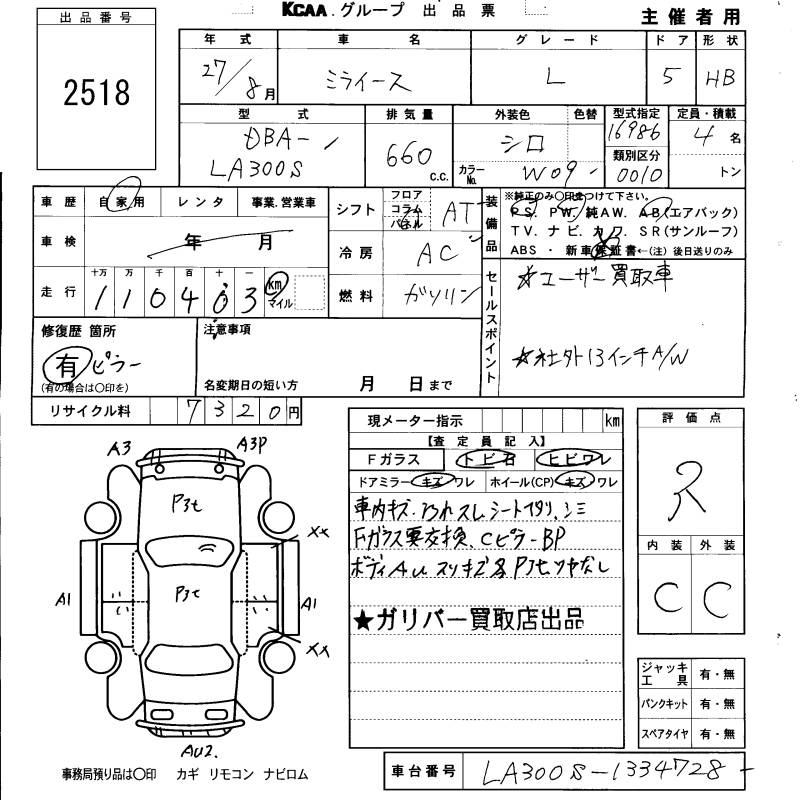 KCAA.グループ 出品票
主催者用
出品番号
2518
年式 車名 グレード ドア 形状
27/8月 ミライース L 5 HB
型式 排気量 外装色 色替 型式指定 定員・積載
DBA-
LA300S 660 c.c. シロ カラーNo. W09 16986 4名
類別区分
0010 トン
車歴 自家用 レンタ 事業.営業車
シフト フロア コラム パネル AT
装備品 ※純正のみ○印をつけて下さい。
PS. PW. 純AW. AB(エアバック)
TV. ナビ. カワ. SR(サンルーフ)
ABS ・ 新車保証書←(注) 後日送りのみ
車検 年 月
冷房 AC
走行 十万 万 千 百 十 一
110403 km マイル
燃料 ガソリン
セールスポイント
☆ユーザー買取車
☆社外13インチA/W
修復歴 箇所
有 ピラー
(有の場合は○印を)
注意事項
名変期日の短い方 月 日まで
リサイクル料 7320円
現メーター指示 km
【査定員記入】
Fガラス トビ石 ヒビワレ
ドアミラー キズ ワレ ホイール(CP) キズ ワレ
車内キズ.汚れスレシートヘタリ.シミ
Fガラス要交換、CピラーBP
★ガリバー買取店出品
評価点
内装 外装
C C
ジャッキ 工具 有・無
パンクキット 有・無
スペアタイヤ 有・無
A3 A3P
P3t
XX
P3t
A1 A1
XX
AU2.
事務局預り品は○印 カギ リモコン ナビロム
車台番号 LA300S-1334728